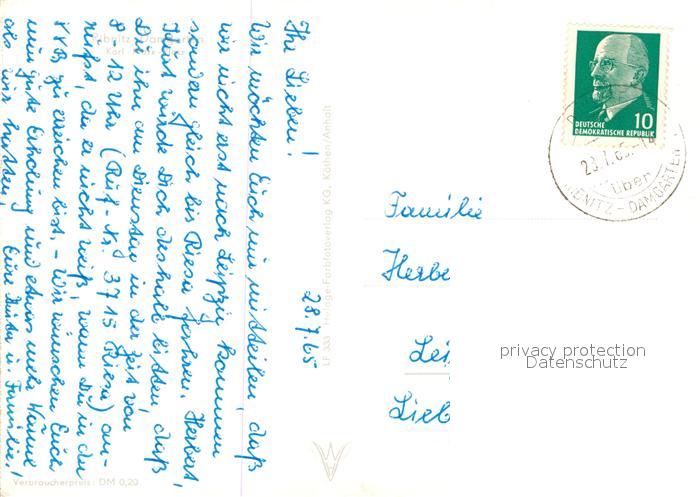 Ribnitz-Damgarten
Karl
28.7.65
Ihr Lieben!
Wir möchten Euch nur mitteilen, daß
wir nicht erst nach Leipzig kommen
sondern gleich bis Riesa fahren. Herbert,
Horst würde Dich deshalb bitten, daß
Du ihn am Dienstag in der Zeit von
8-12 Uhr (Ruf-Nr. 3715 Riesa) an-
rufst, da er nicht weiß, wann Du in der
VVB zu erreichen bist. - Wir wünschen Euch
nun gute Erholung und etwas mehr Wärme
als wir hatten.
Eure
Familie!
Verbraucherpreis: DM 0,20
LF 333 Heldge-Farbfotoverlag KG, Köthen/Anhalt
DEUTSCHE 10
DEMOKRATISCHE REPUBLIK
über
RIBNITZ-DAMGARTEN
Familie
Herbe
Lei
Lieb
privacy protection
Datenschutz